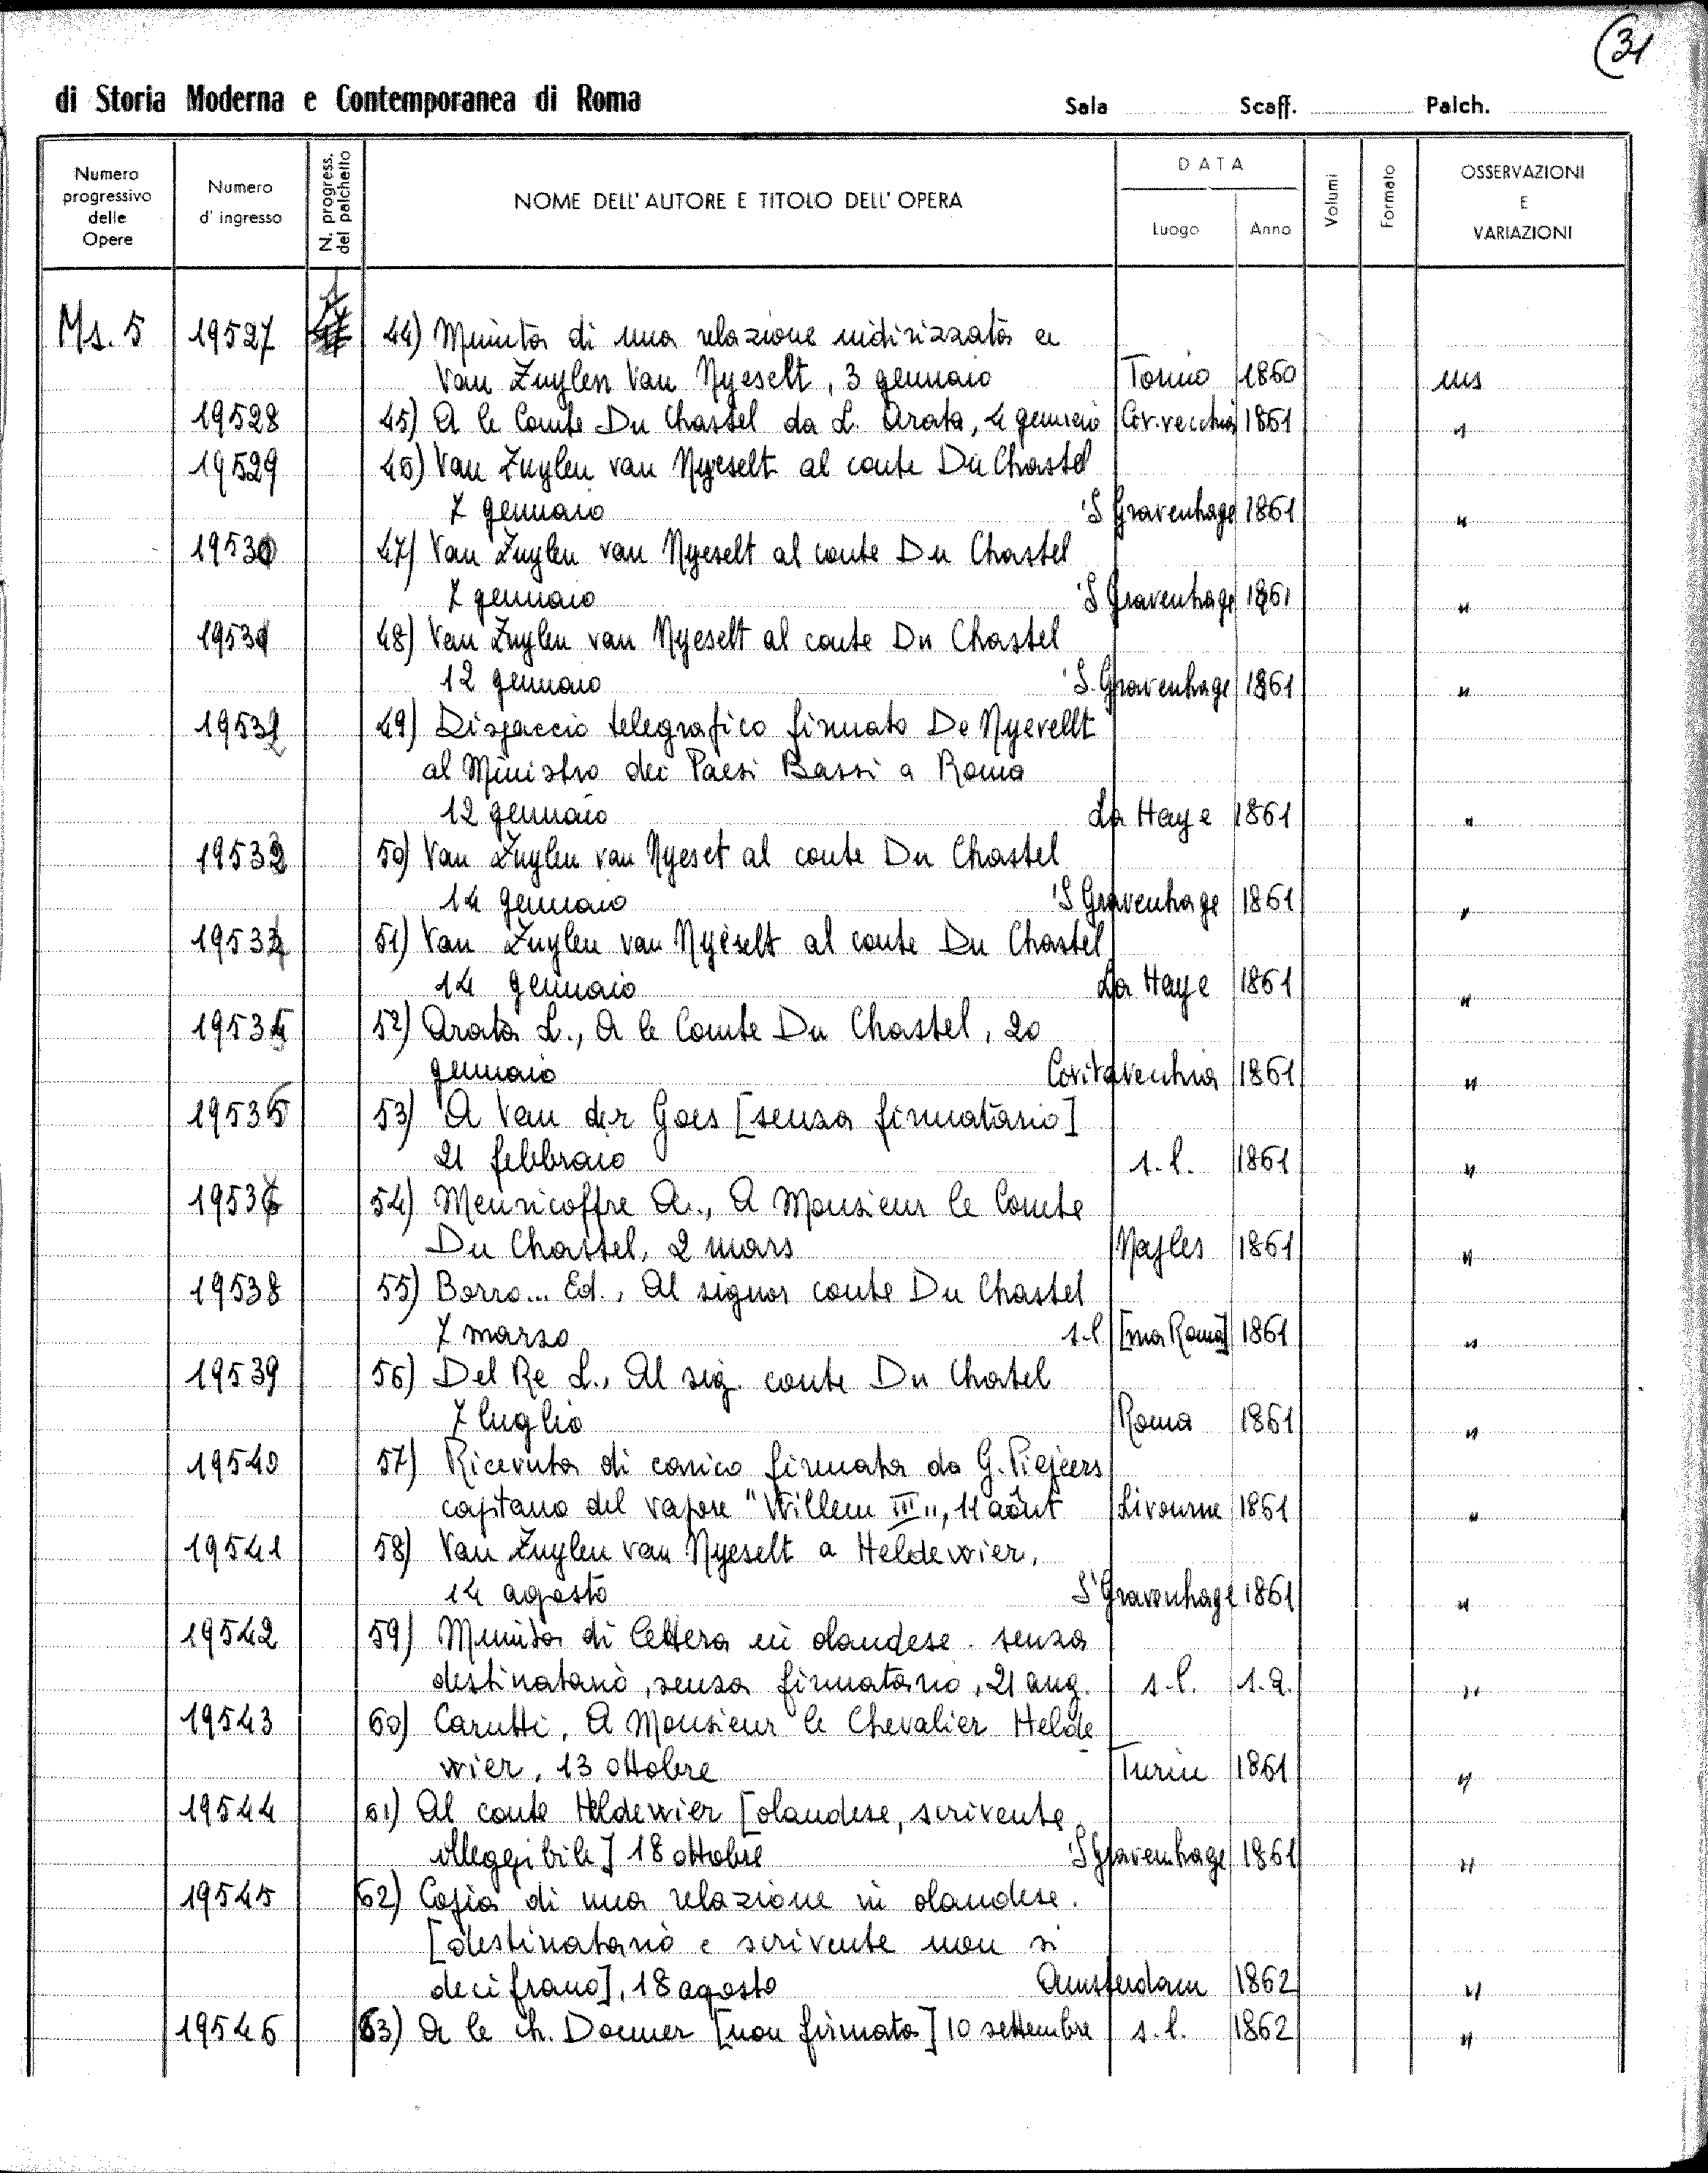 31
di Storia Moderna e Contemporanea di Roma Sala Scaff. Palch.
Numero progressivo delle Opere
Numero d' ingresso
N. progress. del palchetto
NOME DELL' AUTORE E TITOLO DELL' OPERA
DATA
Luogo Anno
Volumi
Formato
OSSERVAZIONI E VARIAZIONI
Ms. 5 19527 44) Minuta di una relazione indirizzata a
Van Zuylen Van Nyeselt, 3 gennaio Torino 1860 ms
19528 45) A le Comte Du Chastel da L. Arata, 4 gennaio Civ.vecchia 1861 "
19529 46) Van Zuylen van Nyeselt al conte Du Chastel
7 gennaio 'S Gravenhage 1861 "
19530 47) Van Zuylen van Nyeselt al conte Du Chastel
7 gennaio 'S Gravenhage 1861 "
19531 48) Van Zuylen van Nyeselt al conte Du Chastel
12 gennaio 'S. Gravenhage 1861 "
19532 49) Dispaccio telegrafico firmato De Nyevellt
al Ministro dei Paesi Bassi a Roma
12 gennaio La Haye 1861 "
19533 50) Van Zuylen van Nyeset al conte Du Chastel
14 gennaio 'S Gravenhage 1861 "
19534 51) Van Zuylen van Nyeselt al conte Du Chastel
14 gennaio La Haye 1861 "
19535 52) Arata L., A le Comte Du Chastel, 20
gennaio Civitavecchia 1861 "
19536 53) A Van der Goes [senza firmatario]
21 febbraio s.l. 1861 "
19537 54) Meuricoffre A., A Monsieur le Comte
Du Chastel, 2 mars Naples 1861 "
19538 55) Borro... Ed., Al signor conte Du Chastel
7 marzo s.l. [ma Roma] 1861 "
19539 56) Del Re L., Al sig. conte Du Chatel
7 luglio Roma 1861 "
19540 57) Ricevuta di carico firmata da G.
capitano del vapore "Willem III", 11 aôut Livourne 1861 "
19541 58) Van Zuylen van Nyeselt a Heldewier,
14 agosto S'Gravenhage 1861 "
19542 59) Minuta di lettera in olandese. senza
destinatario, senza firmatario, 21 aug. s.l. s.a. "
19543 60) Carutti, A Monsieur le Chevalier Helde
wier, 13 ottobre Turin 1861 "
19544 61) Al conte Heldewier [olandese, scrivente
illeggibile] 18 ottobre 'S Gravenhage 1861 "
19545 62) Copia di una relazione in olandese.
[destinatario e scrivente non si
decifrano], 18 agosto Amsterdam 1862 "
19546 63) A le ch. Doemer [non firmata] 10 settembre s.l. 1862 "